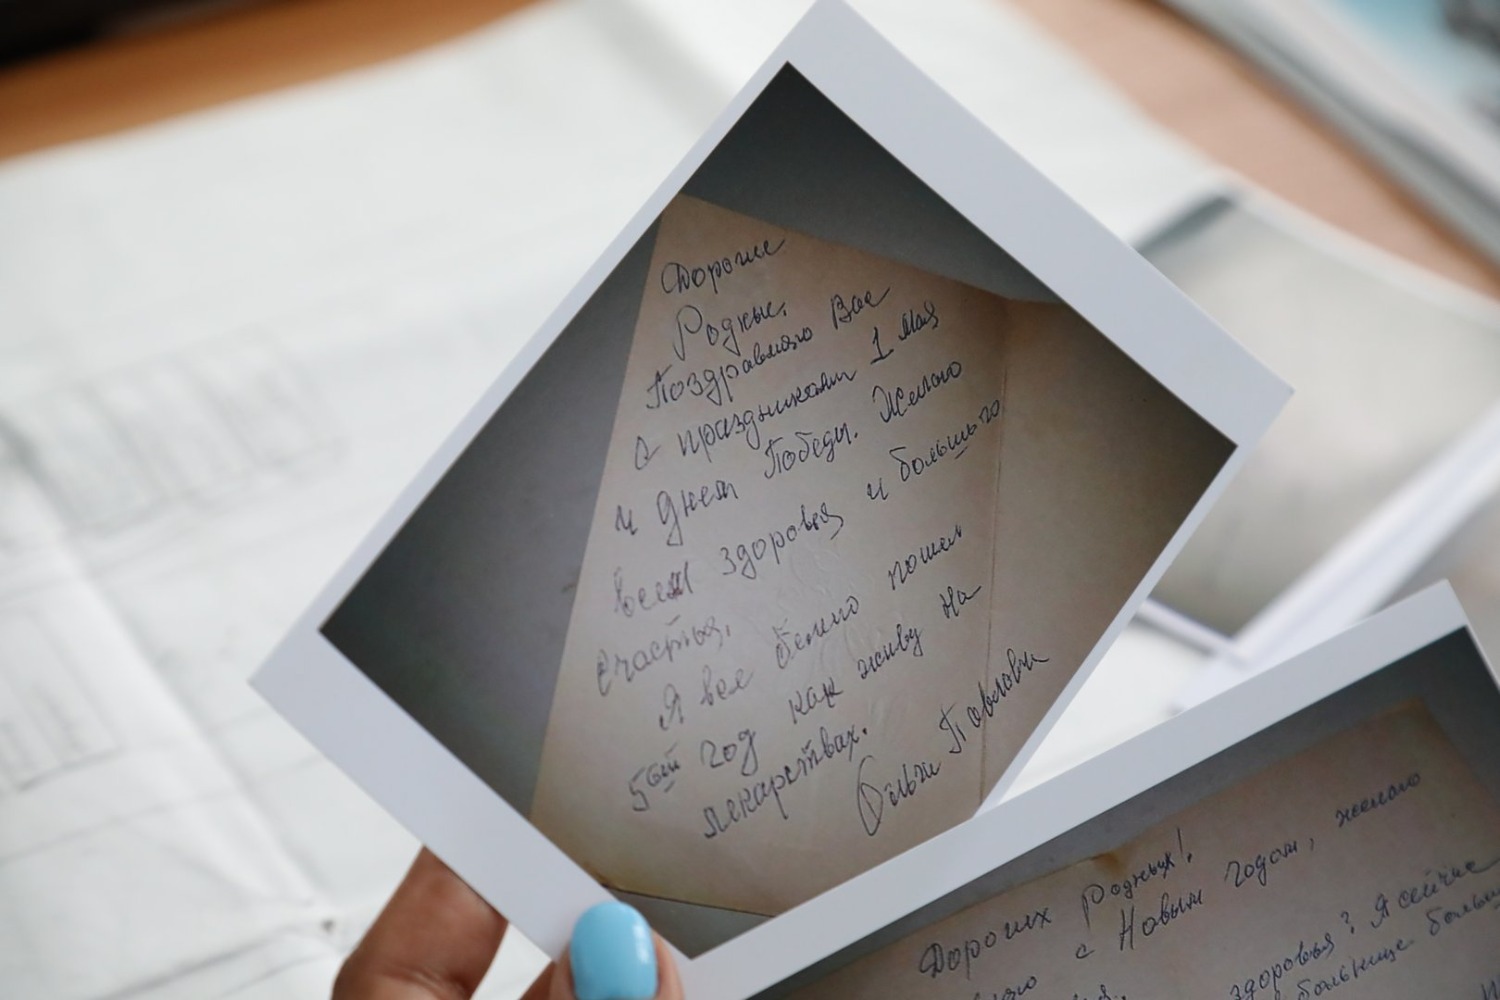 Дорогие
Родные.
Поздравляю Вас
с праздниками 1 мая
и днем Победы. Желаю
всем здоровья и большого
счастья.
Я все болею пошел
5ый год как живу на
лекарствах.
Ольги Павловны
Дорогих Родных!
с Новым годом, желаю
здоровья? Я сейчас
больнице